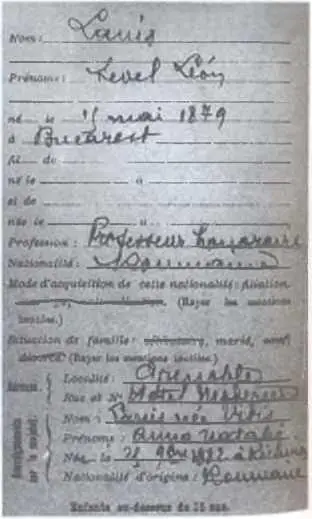 Nom : Lanis
Prénoms : Level León
né le 15 mai 1879
à Bucarest
fil de
né le à
et de
née le à
Profession : Professeur honoraire
Nationalité : Roumaine
Mode d'acquisition de cette nationalité : filiation
(Rayer les mentions
inutiles.)
Situation de famille : célibataire, marié, veuf
divorcé (Rayer les mentions inutiles.)
Localité : Grenoble
Rue et N° Hôtel
Nom : née
Prénoms : Anna
Née le 25 9bre à
Nationalité d'origine : Roumaine
Enfants au-dessous de 15 ans.